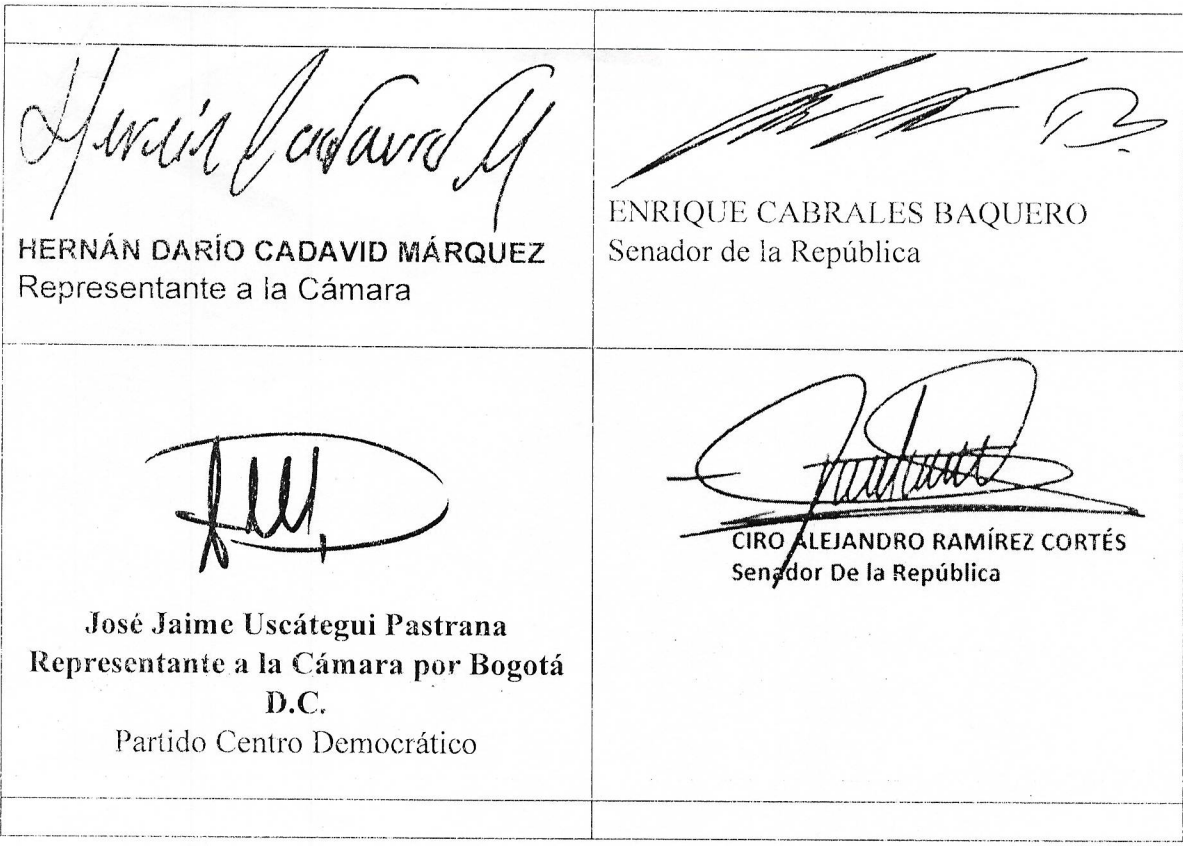 Hernán Cadavid M
HERNÁN DARÍO CADAVID MÁRQUEZ
Representante a la Cámara
ENRIQUE CABRALES BAQUERO
Senador de la República
José Jaime Uscátegui Pastrana
Representante a la Cámara por Bogotá
D.C.
Partido Centro Democrático
CIRO ALEJANDRO RAMÍREZ CORTÉS
Senador De la República